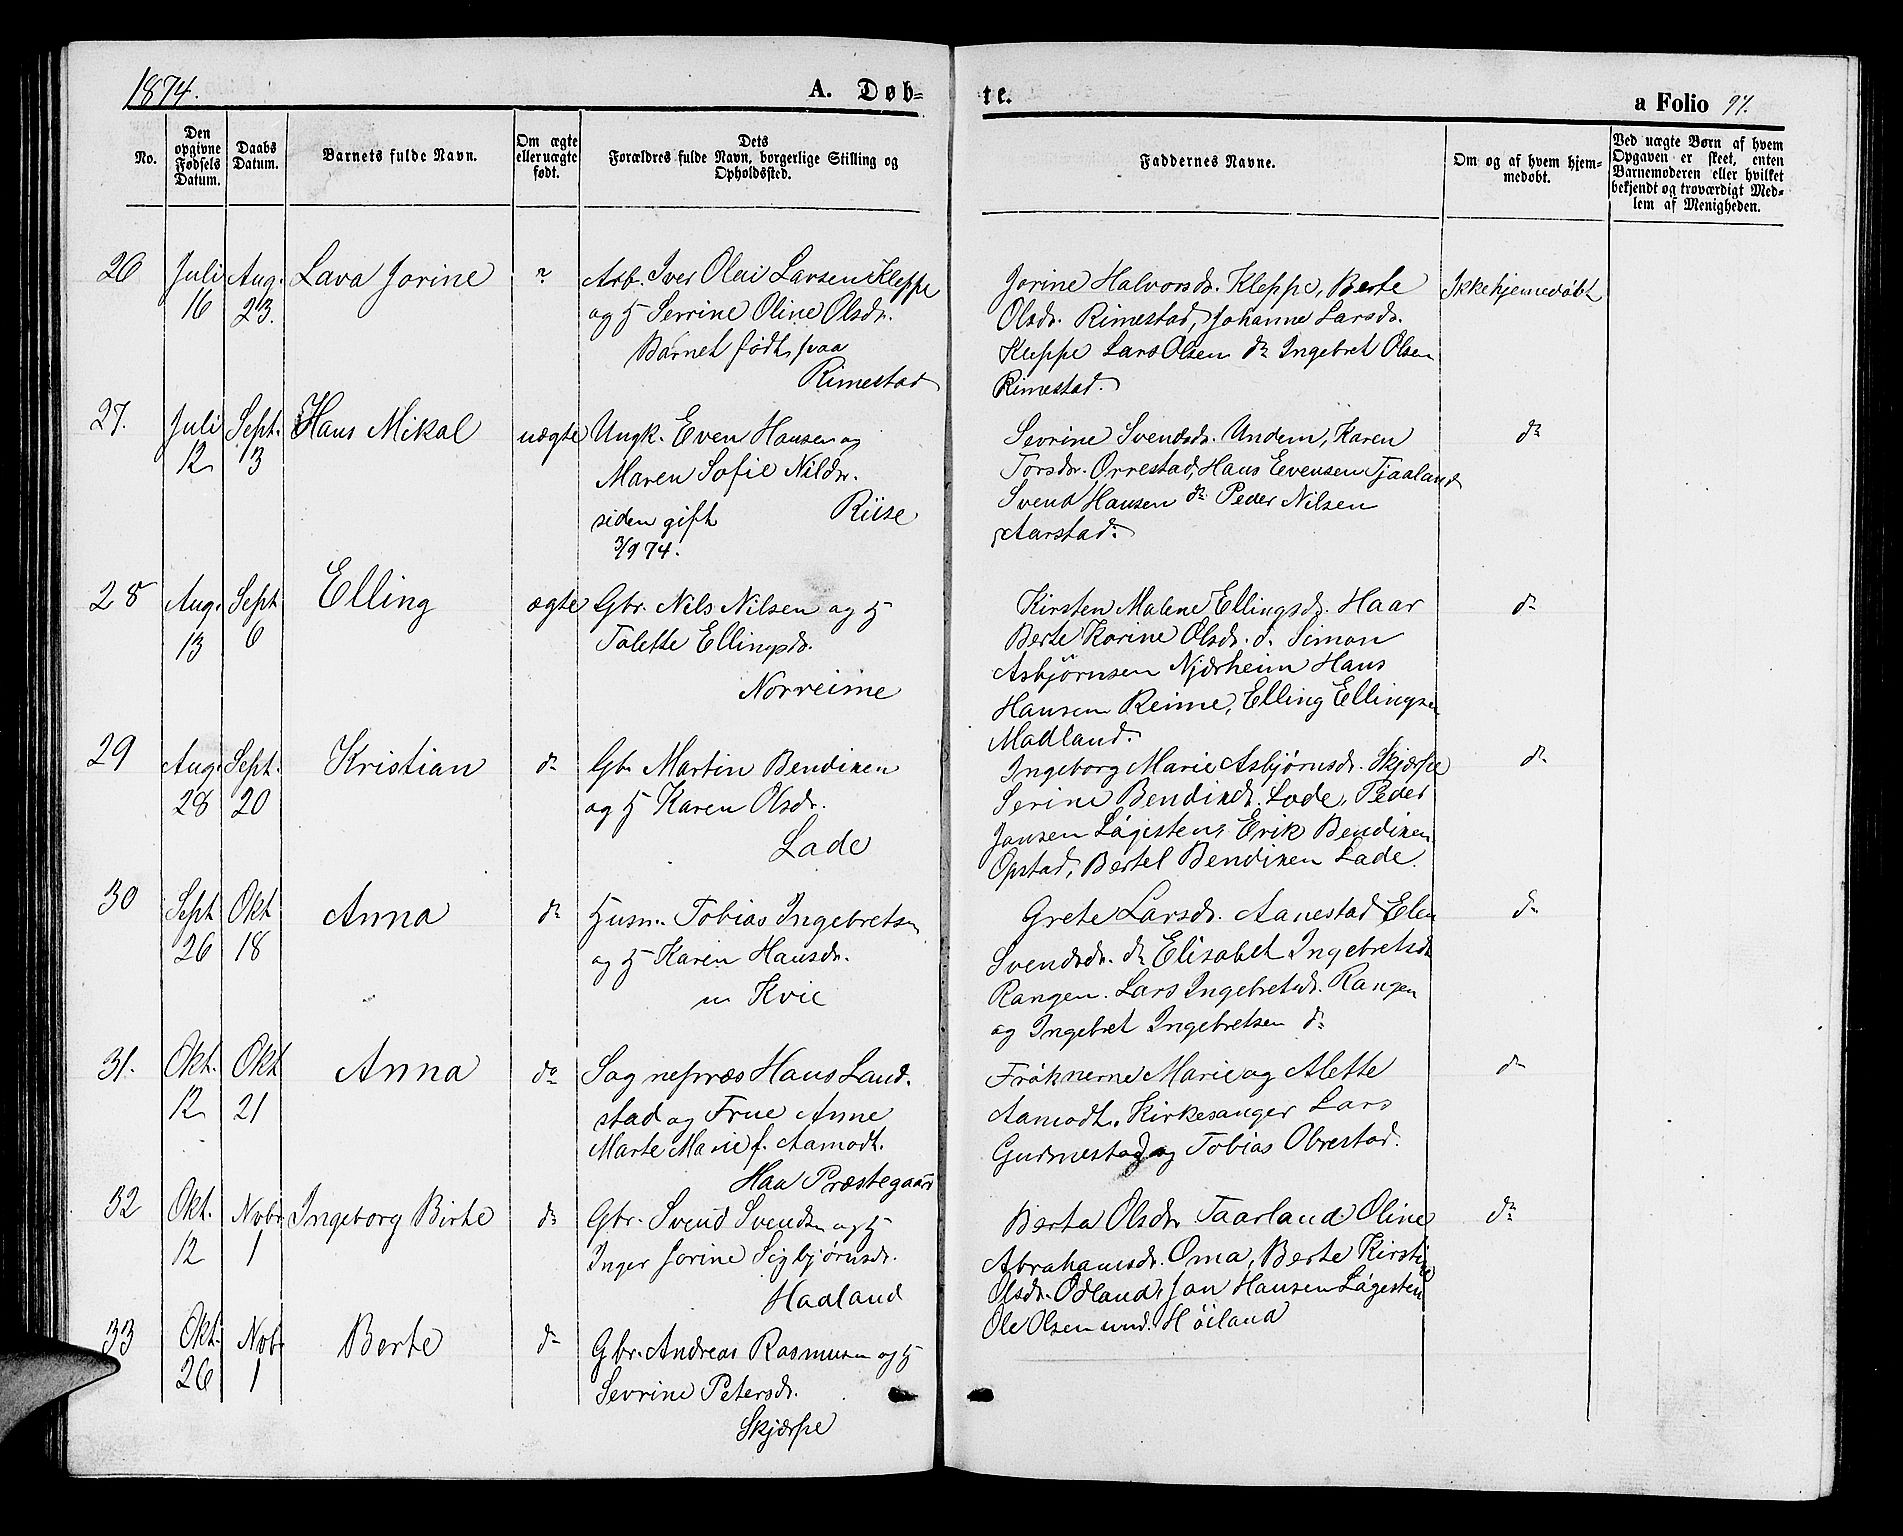 1874.
A. Døb-
te.
a Folio 97.
No.
Den
opgivne
Fødsels
Datum.
Daabs
Datum.
Barnets fulde Navn.
Om ægte
eller uægte
født.
Dets
Forældres fulde Navn, borgerlige Stilling og
Opholdssted.
Faddernes Navne.
Om og af hvem hjem-
medøbt.
Ved uægte Børn af hvem
Opgaven er skeet, enten
Barnemoderen eller hvilket
bekjendt og troværdigt Med-
lem af Menigheden.
26
Juli
16
Aug.
23.
Lava Jorine
Arb. Iver Olai Larsen Kleppe
og H Serrine Oline Olsdr.
Barnet født paa
Rimestad
Jorine Halvorsdr. Kleppe, Berte
Olsdr. Rimestad, Johanne Larsdr.
Kleppe Lars Olsen do Ingebret Olsen
Rimestad.
Ikke hjemmedøbt
27.
Juli
12
Sept.
13
Hans Mikal
uægte
Ungk. Even Hansen og
Maren Sofie Nilsdr.
siden gift Riise
3/9 74.
Sevrine Svendsdr. Undem, Karen
Torsdr. Orrestad, Hans Evensen Tjaaland
Svend Hansen do Peder Nilsen
Aarstad.
do
28
Aug.
13
Sept
6
Elling
ægte
Gbr. Nils Nilsen og H
Talette Ellingsdr.
Norreime
Kirsten Malene Ellingsdr. Haar
Berte Karine Olsdr. d. Simon
Asbjørnsen Njærheim Hans
Hansen Reime, Elling Ellingsen
Madland.
do
29
Aug.
28
Sept.
20
Kristian
do
Gbr Martin Bendixen
og H Karen Olsdr.
Lade
Ingeborg Marie Asbjørnsdr. Skjærpe
Serine Bendixdr. Lode, Peder
Jansen Løgesten, Erik Bendixen
Opstad, Bertel Bendixen Lade.
do
30
Sept
26
Okt
18
Anna
do
Husm. Tobias Ingebretsen
og H Karen Hansdr.
u Kvie
Grete Larsdr. Aanestad Elen
Svendsdr. do Elisabet Ingebretsdr
Rangen. Lars Ingebretsdr. Rangen
og Ingebret Ingebretsen do
do
31.
Okt.
12
Okt
21
Anna
do
Sognepræs Hans Land-
stad og Frue Anne
Marte Marie f. Aamodt.
Haa Præstegaard
Frøknerne Marie og Alette
Aamodt. Kirkesanger Lars
Gudmestad og Tobias Obrestad.
do
32
Okt.
12
Novbr
1
Ingeborg Birte
do
Gbr. Svend Svendsen og H
Inger Jorine Sigbjørnsdr.
Haaland
Berta Olsdr. Taarland. Oline
Abrahamsdr. Oma, Berte Kirstine
Olsdr. Ødland, Jan Hansen Løgesten
Ole Olsen und. Høiland
do
33
Okt.
26
Nvb.
1
Berte
do
Gbr. Andreas Rasmusen og H
Sevrine Petersdr.
Skjærpe